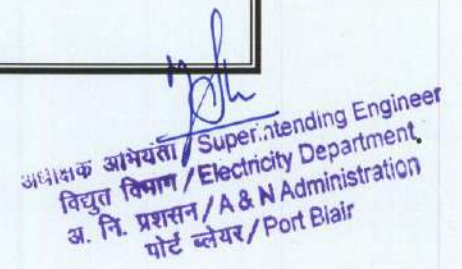 अधीक्षक अभियंता / Superintending Engineer
विद्युत विभाग / Electricity Department,
अ. नि. प्रशासन / A & N Administration
पोर्ट ब्लेयर / Port Blair